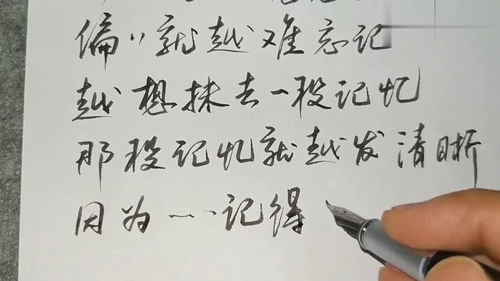 偏〃就越难忘记
越想抹去一段记忆
那段记忆就越发清晰
因为一一记得